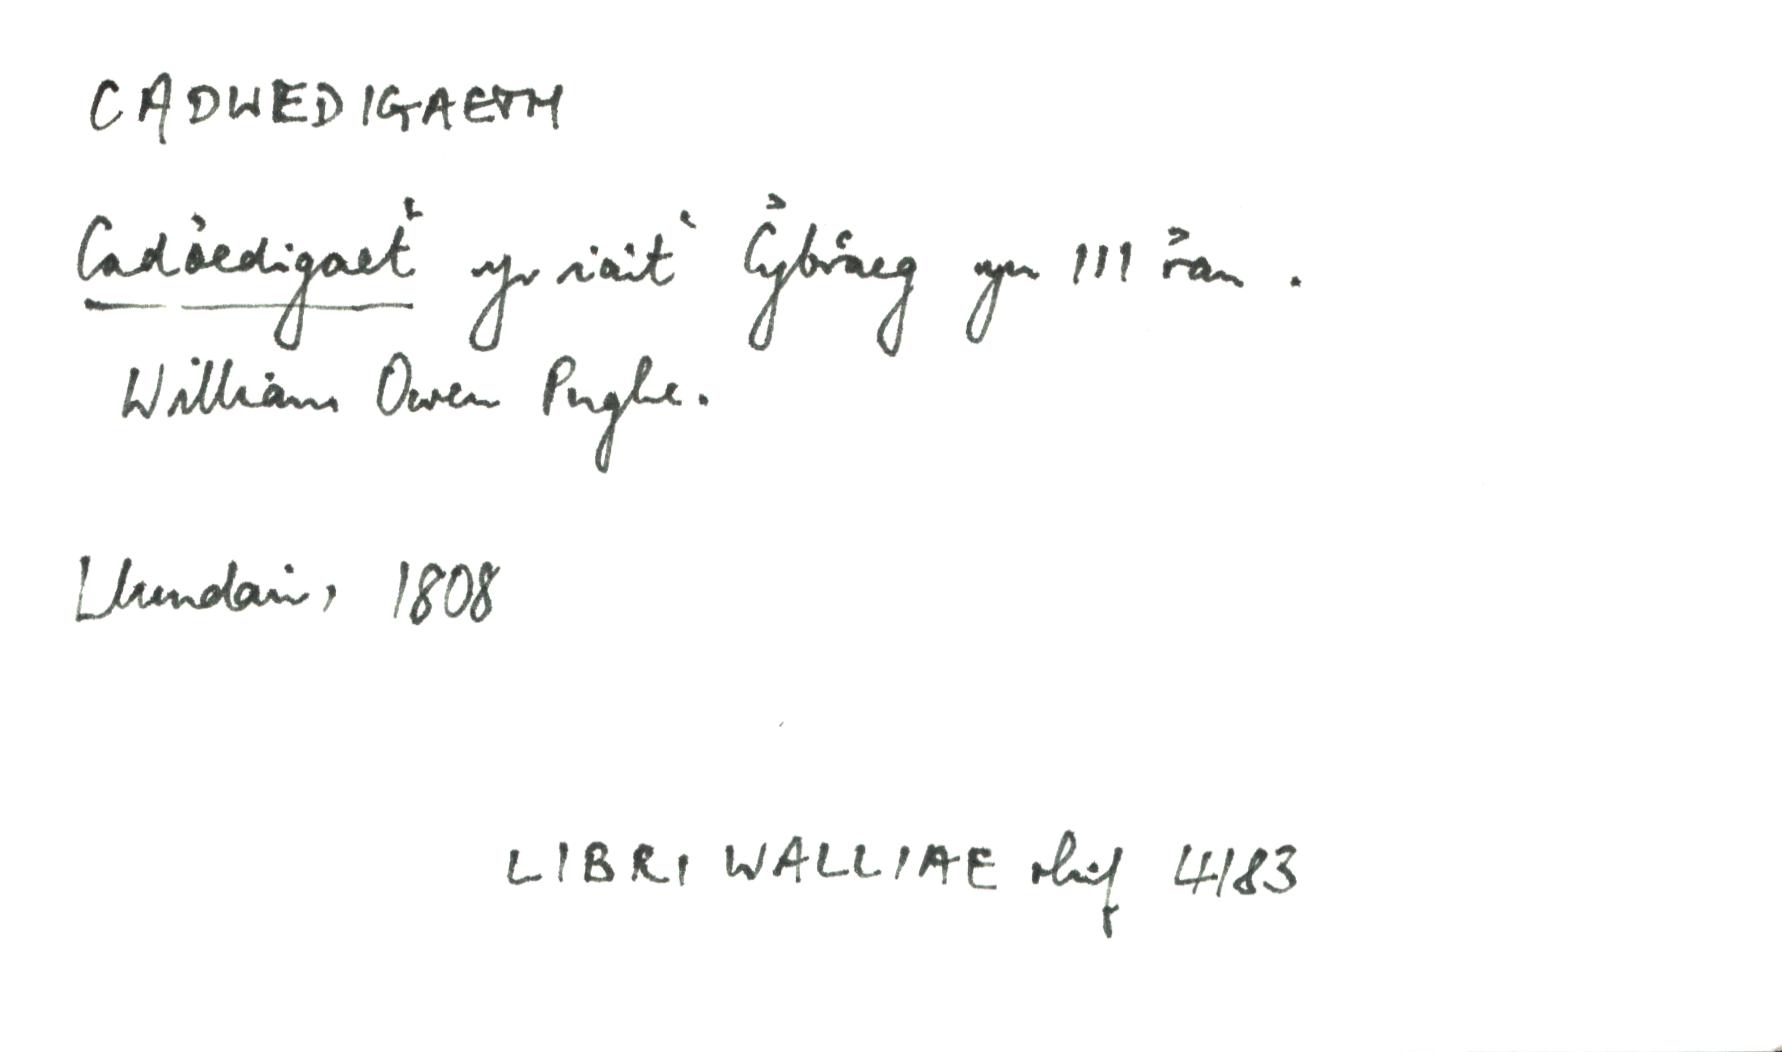 CADWEDIGAETH
Cadòedigaet‛ yr iait‛ G̓ybràeg yn III r̓an.
William Owen Pughe.
Llundain, 1808
LIBRI WALLIAE rhif 4183